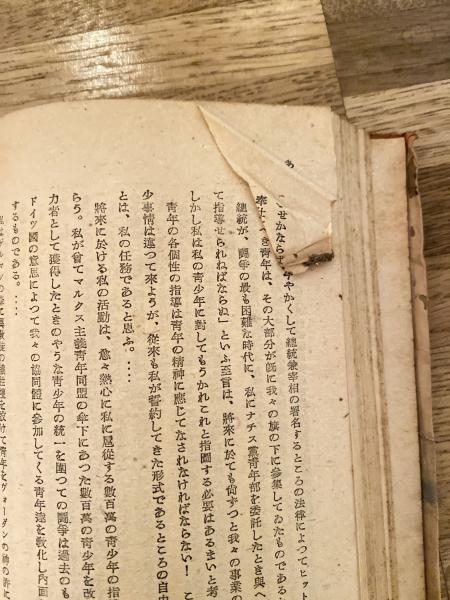 せかならば、やかくして總統兼宰相の署名するところの法律によつてヒット
べき靑年は、その大部分が既に我々の旗の下に參集してゐたものである
總統が、鬪爭の最も困難な時代に、私にナチス黨靑年部を委託したとき與へ
て指導せられねばならぬ」といふ至言は、將來に於ても尙ずつと我々の事業の
しかし私は私の靑少年に對してもうかれこれと指圖する必要はあるまいと考
靑年の各個性の指導は靑年の精神に應じてなされなければならない！こ
少事情は違つて來ようが、從來も私が誓約してきた形式であるところの自由
とは、私の任務であると思ふ。‥‥
將來に於ける私の活動は、愈々熱心に私に扈從する數百萬の靑少年の指
らう。私が曾てマルクス主義靑年同盟の傘下にあつた數百萬の靑少年を改
力者として獲得したときのやうな靑少年の統一を圖つての鬪爭は過去のも
ドイツ國の意思によつて我々の協同體に參加してくる靑年達を敎化し內面
するものである。‥‥